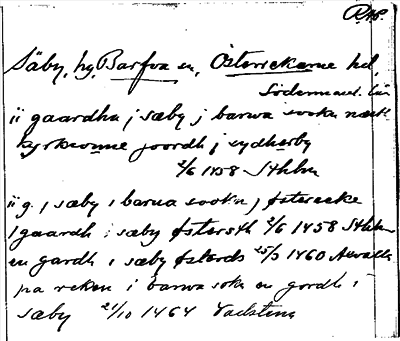 RAP.
Säby, hg, Barfva sn, Österrekarne hd,
Södermanl. län
ii gaardha j sæby j barwa sokn næst
kyrkionne joordh j sydherby
2/6 1458 Sthlm
ii g. j sæby i barua sookn j østerecke
1 gaardh i sæby 2/6 1458 Sthlm
en gardh i sæby 25/3 1460
pa reken i barwa sokn en gordh i
sæby 21/10 1464 Vadstena